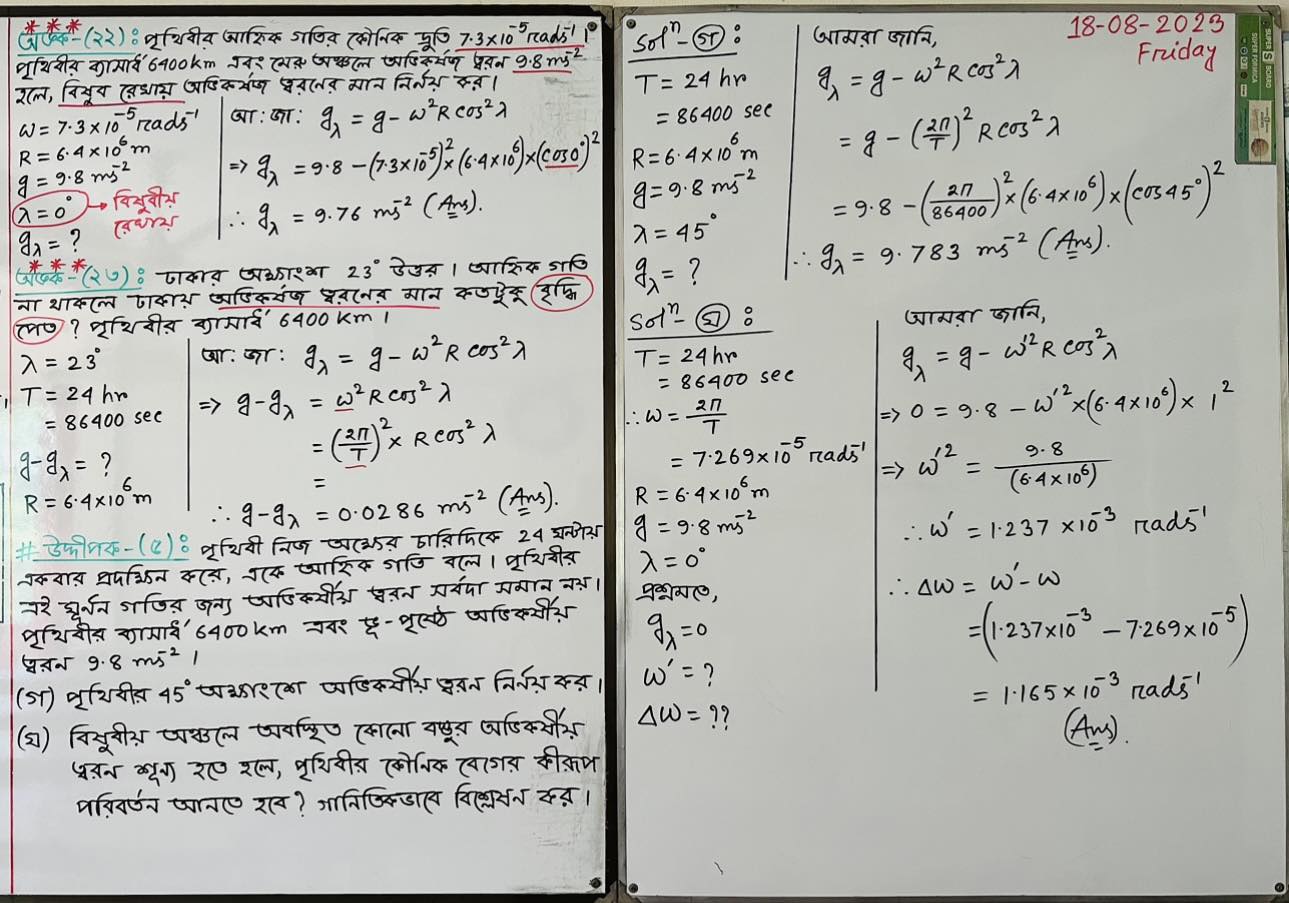 * * *
অংক-(২২): পৃথিবীর আহ্নিক গতির কৌনিক দ্রুতি 7.3×10⁻⁵ rads⁻¹।
পৃথিবীর ব্যাসার্ধ 6400km এবং মেরু অঞ্চলে অভিকর্ষজ ত্বরন 9.8 ms⁻²
হলে, বিষুব রেখায় অভিকর্ষজ ত্বরনের মান নির্নয় কর।
ω = 7.3×10⁻⁵ rads⁻¹
R = 6.4×10⁶ m
g = 9.8 ms⁻²
λ = 0° → বিষুবীয়
রেখায়
g_λ = ?
আ: জা: g_λ = g − ω²R cos²λ
⇒ g_λ = 9.8 − (7.3×10⁻⁵)² × (6.4×10⁶) × (cos0°)²
∴ g_λ = 9.76 ms⁻² (Ans).
* * *
অংক-(২৩): ঢাকার অক্ষাংশ 23° উত্তর। আহ্নিক গতি
না থাকলে ঢাকায় অভিকর্ষজ ত্বরনের মান কতটুকু বৃদ্ধি
পেত? পৃথিবীর ব্যাসার্ধ 6400 km।
λ = 23°
T = 24 hr
= 86400 sec
g − g_λ = ?
R = 6.4×10⁶ m
আ: জা: g_λ = g − ω²R cos²λ
⇒ g − g_λ = ω²R cos²λ
= (2π/T)² × R cos²λ
=
∴ g − g_λ = 0.0286 ms⁻² (Ans).
# উদ্দীপক-(৫): পৃথিবী নিজ অক্ষের চারিদিকে 24 ঘন্টায়
একবার প্রদক্ষিন করে, একে আহ্নিক গতি বলে। পৃথিবীর
এই ঘূর্নন গতির জন্য অভিকর্ষীয় ত্বরন সর্বদা সমান নয়।
পৃথিবীর ব্যাসার্ধ 6400km এবং ভূ-পৃষ্ঠে অভিকর্ষীয়
ত্বরন 9.8 ms⁻²।
(গ) পৃথিবীর 45° অক্ষাংশে অভিকর্ষীয় ত্বরন নির্নয় কর।
(ঘ) বিষুবীয় অঞ্চলে অবস্থিত কোনো বস্তুর অভিকর্ষীয়
ত্বরন শূন্য হতে হলে, পৃথিবীর কৌনিক বেগের কীরূপ
পরিবর্তন আনতে হবে? গানিতিকভাবে বিশ্লেষন কর।
18-08-2023
Friday
SUPER S BOARD
SUPER FORMICA
Solⁿ-(গ):
T = 24 hr
= 86400 sec
R = 6.4×10⁶ m
g = 9.8 ms⁻²
λ = 45°
g_λ = ?
আমরা জানি,
g_λ = g − ω²R cos²λ
= g − (2π/T)² R cos²λ
= 9.8 − (2π/86400)² × (6.4×10⁶) × (cos45°)²
∴ g_λ = 9.783 ms⁻² (Ans).
Solⁿ-(ঘ):
T = 24 hr
= 86400 sec
∴ ω = 2π/T
= 7.269×10⁻⁵ rads⁻¹
R = 6.4×10⁶ m
g = 9.8 ms⁻²
λ = 0°
প্রশ্নমতে,
g_λ = 0
ω′ = ?
Δω = ??
আমরা জানি,
g_λ = g − ω′²R cos²λ
⇒ 0 = 9.8 − ω′² × (6.4×10⁶) × 1²
⇒ ω′² = 9.8/(6.4×10⁶)
∴ ω′ = 1.237×10⁻³ rads⁻¹
∴ Δω = ω′ − ω
= (1.237×10⁻³ − 7.269×10⁻⁵)
= 1.165×10⁻³ rads⁻¹
(Ans).